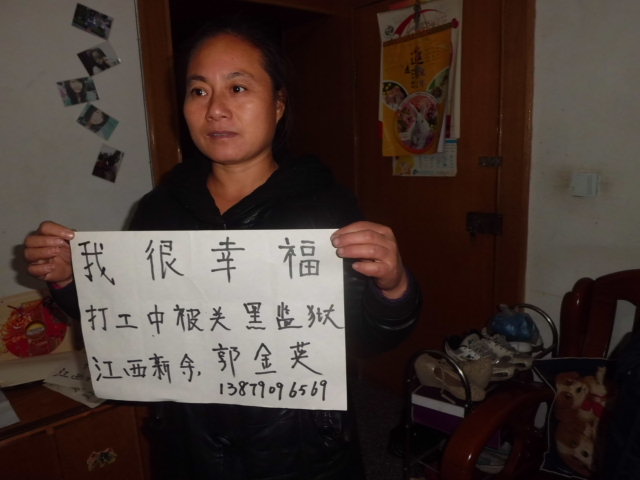 我很幸福
打工中被关黑监狱
江西新余,郭金英
13879096569